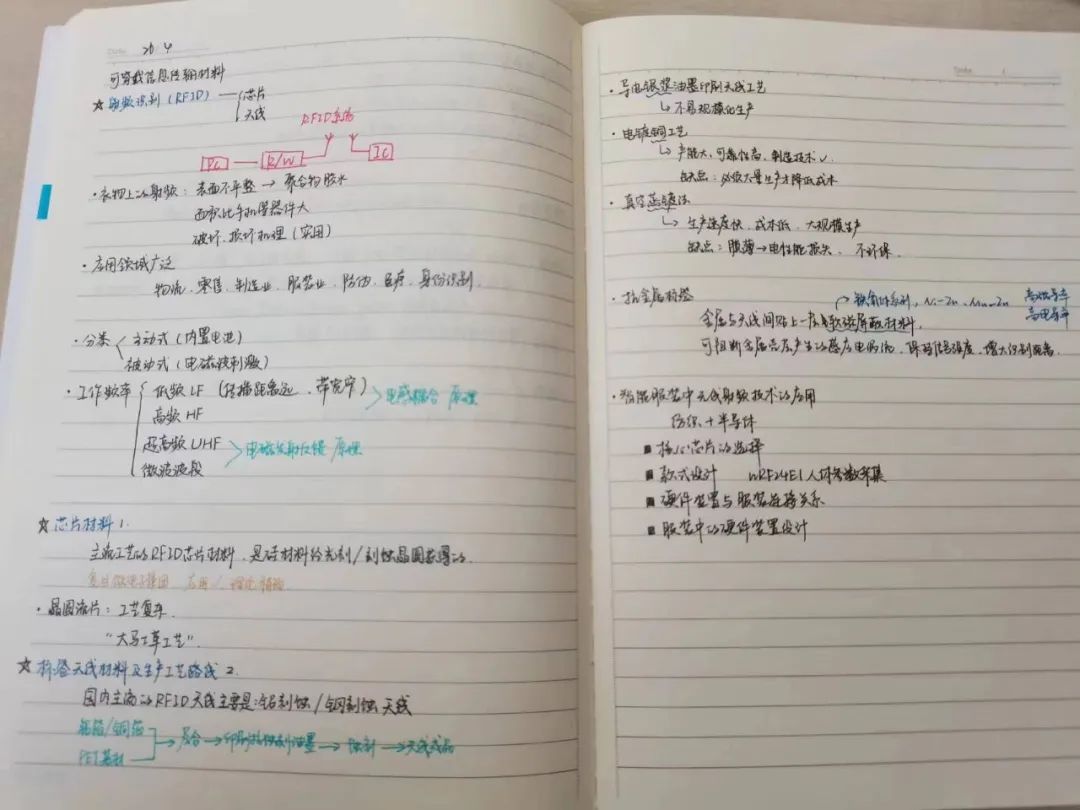 Date 26.4
可穿戴信息传输材料
☆ 射频识别（RFID）— 芯片
天线
RFID系统
PC — R/W IC
· 衣物上的射频：表面不平整 → 聚合物胶水
面积比手机等器件大
破坏、损坏机理（实用）
· 应用领域广泛
物流、零售、制造业、服装业、防伪、医疗、身份识别.
· 分类 主动式（内置电池）
被动式（电磁波刺激）
· 工作频率 低频 LF （传播距离远、带宽窄） 电感耦合 原理
高频 HF
超高频 UHF 电磁反射反馈 原理
微波波段
☆ 芯片材料 1.
主流工艺的RFID芯片材料，是硅材料经光刻/刻蚀晶圆获得的.
复旦微电子集团
· 晶圆流片：工艺复杂.
“大马士革工艺”.
☆ 标签天线材料及生产工艺路线 2.
国内主流的RFID天线主要是：铝刻蚀/铜刻蚀 天线
铝箔/铜箔
PET基材 → 复合 → 印刷抗蚀刻油墨 → 蚀刻 → 天线成品
Date
· 导电银浆油墨印刷天线工艺
↳ 不易规模化生产
· 电镀铜工艺
↳ 产能大，可靠性高，制造技术✓.
缺点：必须大量生产才降低成本
· 真空蒸镀法
↳ 生产速度快，成本低，大规模生产
缺点：膜薄→电性能损失， 不环保.
· 抗金属标签 铁氧体系列，Ni-Zn、Mn-Zn 高磁导率
高电导率
金属与天线间贴上一层软磁屏蔽材料.
可阻断金属壳反产生的感应电涡流，保持信号强度，增大识别距离.
· 智能服装中无线射频技术的应用
纺织 + 半导体
■ 核心芯片的选择
■ 款式设计 nRF24E1 人体参数采集
■ 硬件装置与服装连接关系
■ 服装中的硬件装置设计